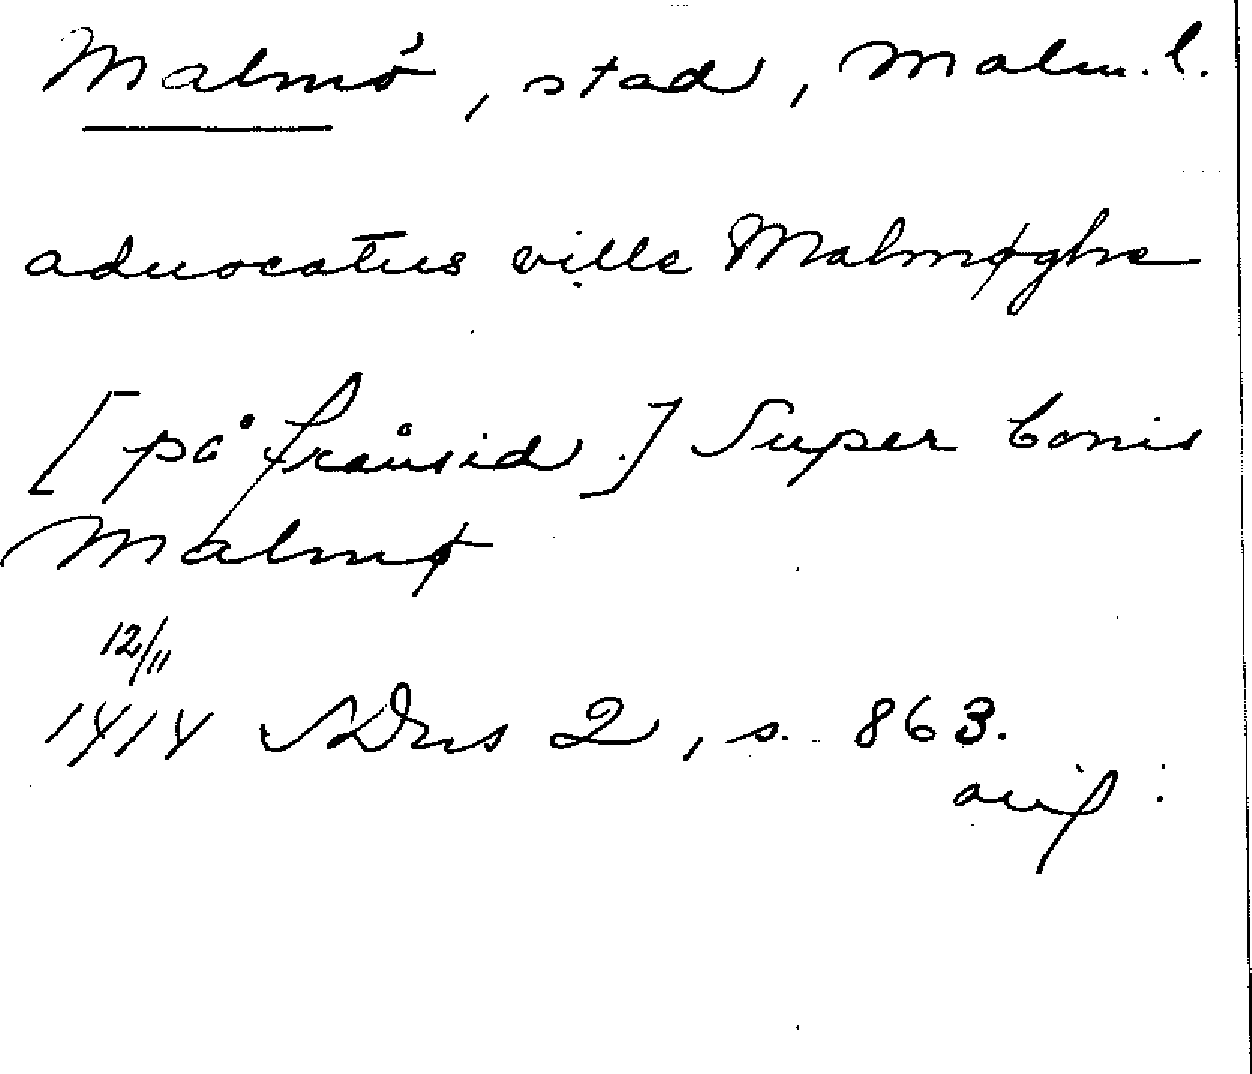 Malmö, stad, Malm. l.
aduocatus ville Malmøghe
[på frånsid.] Super bonis
Malmø
12/11
1414 SDns 2, s. 863.